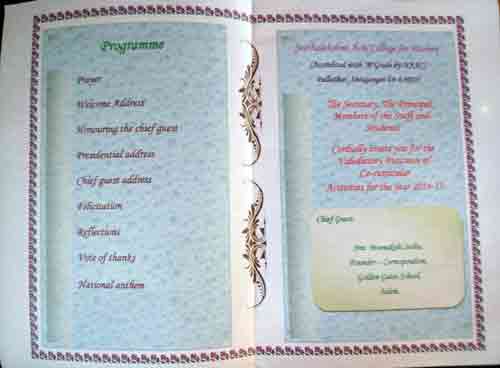 Programme
Prayer
Welcome Address
Honouring the chief guest
Presidential address
Chief guest address
Felicitation
Reflections
Vote of thanks
National anthem
Seethalakshmi Achi College for Women
(Accredited with 'B' Grade by NAAC)
Pallathur, Sivagangai
The Secretary, The Principal,
Members of the Staff and
Students
Cordially invite you for the
Valedictory Function of
Co-curricular
Activities for the year
Chief Guest:
Founder - Correspondent,
Golden Gates School
Salem.